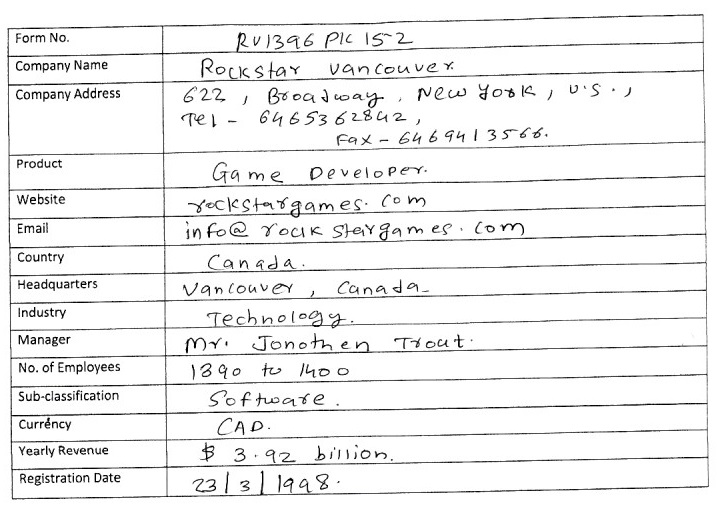 Form No. RV1396 PIC 15-2
Company Name Rockstar Vancouver
Company Address 622, Broadway, New York, U.S.,
Tel - 6465362842,
Fax - 6469413566.
Product Game Developer.
Website rockstargames.com
Email info@rockstargames.com
Country Canada.
Headquarters Vancouver, Canada-
Industry Technology.
Manager Mr. Jonothen Trout.
No. of Employees 1390 to 1400
Sub-classification Software.
Currency CAD.
Yearly Revenue $ 3.92 billion.
Registration Date 23/3/1998.